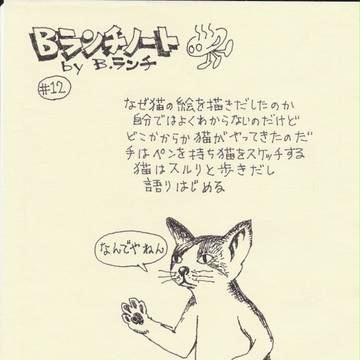 Bランチノート
by B.ランチ
#12
なぜ猫の絵を描きだしたのか
自分ではよくわからないのだけど
どこかからか猫がやってきたのだ
手はペンを持ち猫をスケッチする
猫はスルリと歩きだし
語りはじめる
なんでやねん